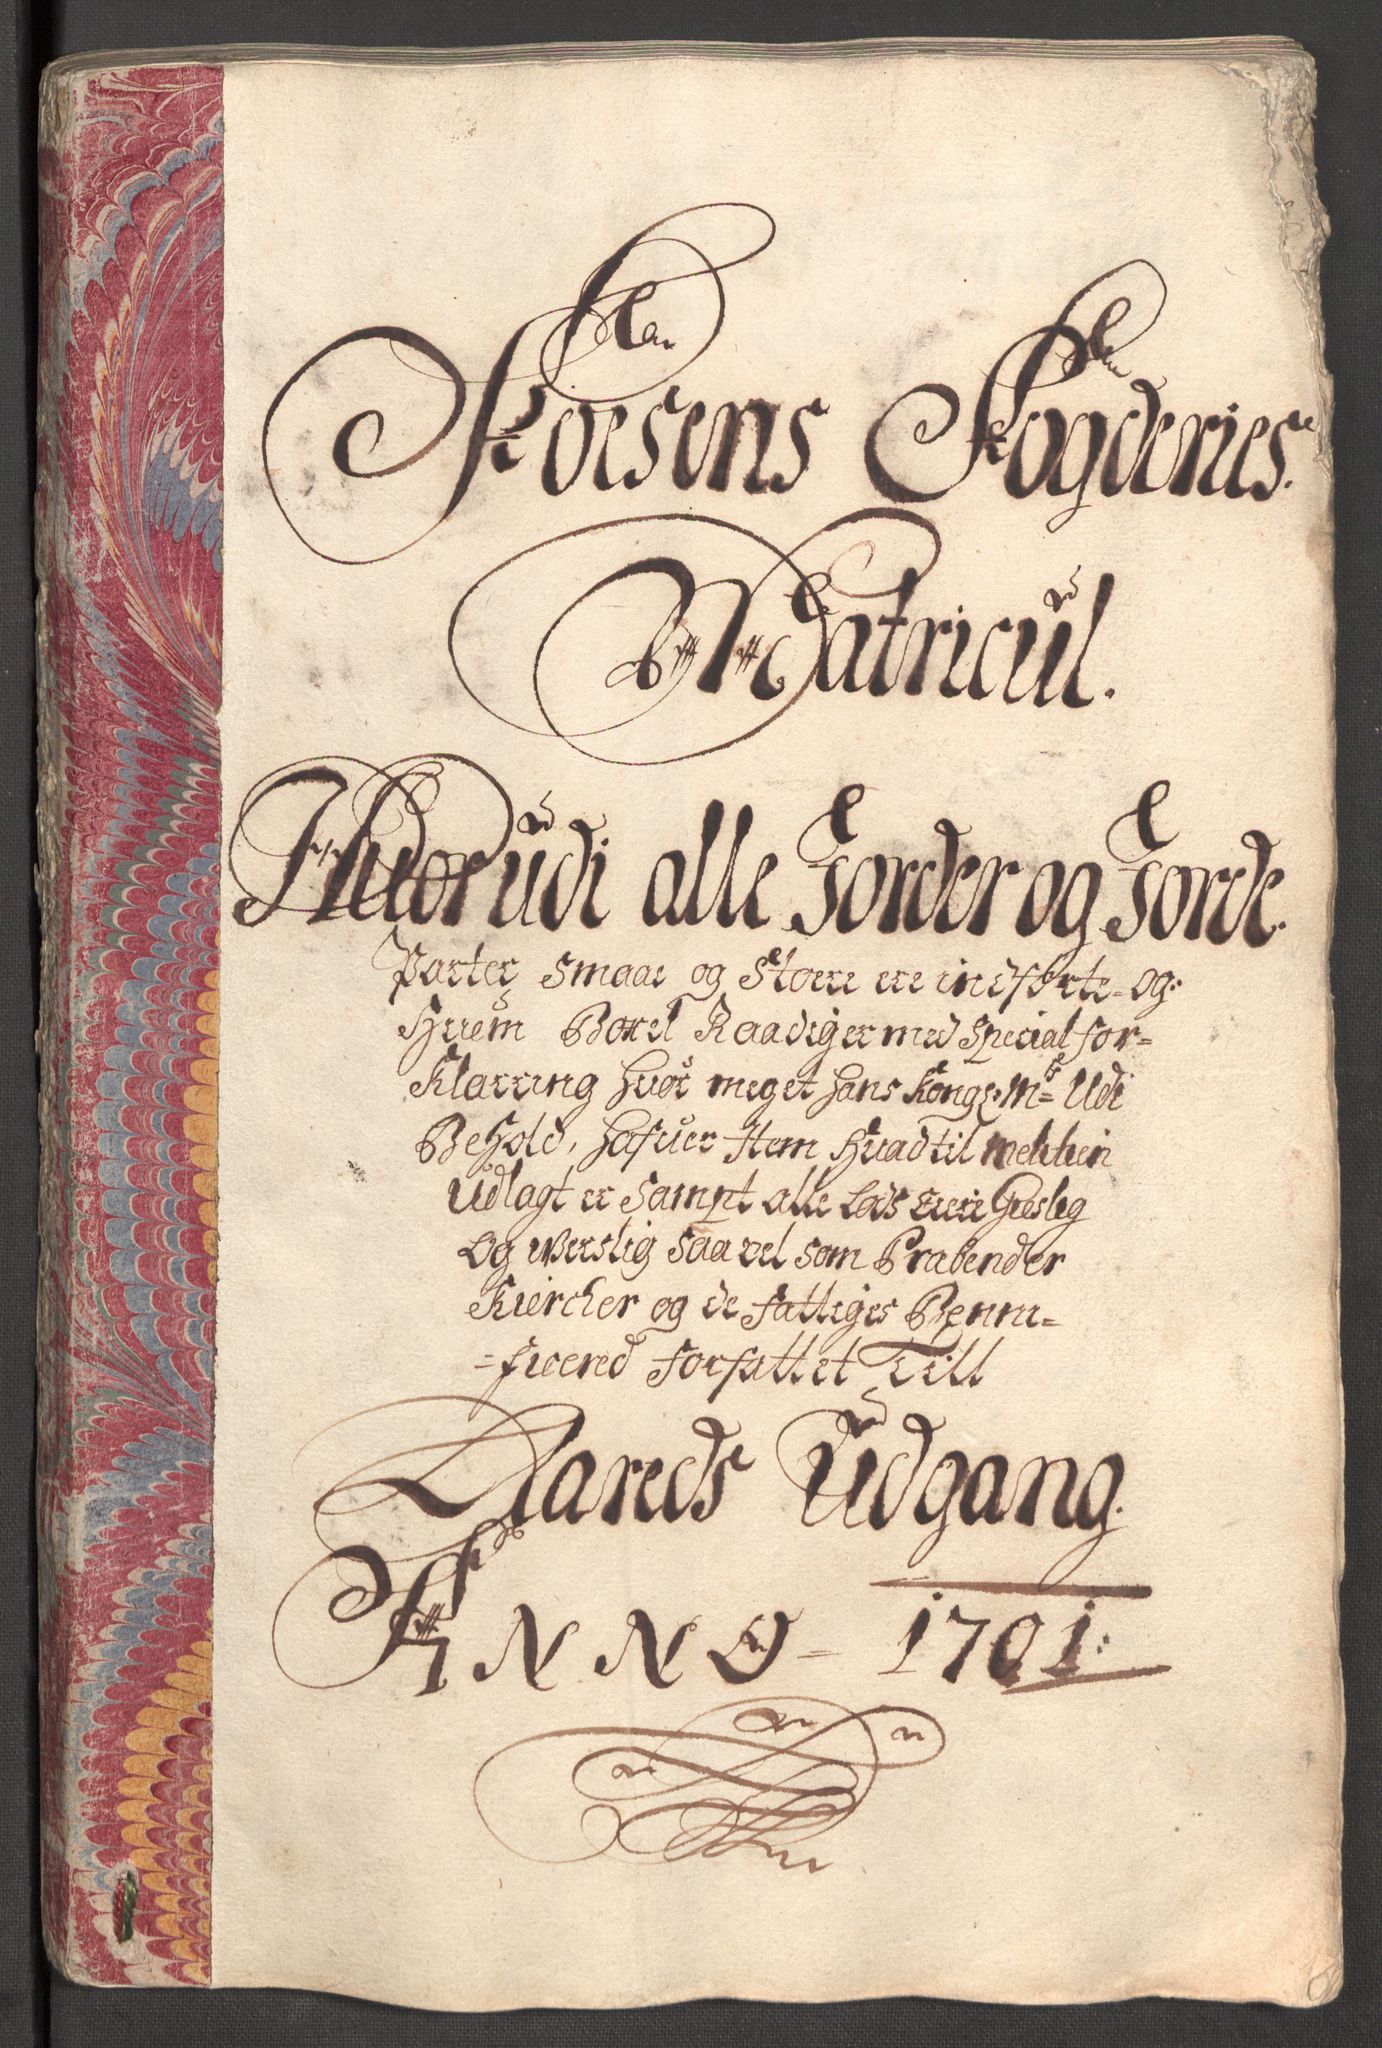 Fosens Fogderies
Matricul.
Huor udi alle Jorder og Jorde
Parter smaae og Store ere indførte og
Huem Boxel Raadiger med Special for=
Klarring Huor meget Hans Kongl: M: Udi
Behold, Hafuer Item Huad til
Udlagt er Sampt alle Lods Eiere Giesleg
Og Werslig saa vel som Præbender
Kiercher og de fattiges Benni=
=ficered forfattet Till
Aareds Udgang.
ANNO = 1701: